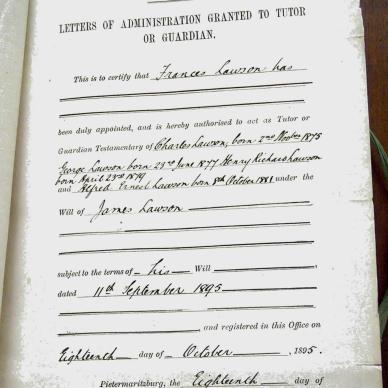 LETTERS OF ADMINISTRATION GRANTED TO TUTOR
OR GUARDIAN.
This is to certify that Frances Lawson has
been duly appointed, and is hereby authorised to act as Tutor or
Guardian Testamentary of Charles Lawson, born 2nd Novber 1875
George Lawson born 23rd June 1877 Henry Richard Lawson
born April 23rd 1879
and Alfred Ernest Lawson born 8th October 1881 under the
Will of James Lawson
subject to the terms of his Will
dated 11th September 1895
and registered in this Office on
Eighteenth day of October, 1895.
Pietermaritzburg, the Eighteenth day of